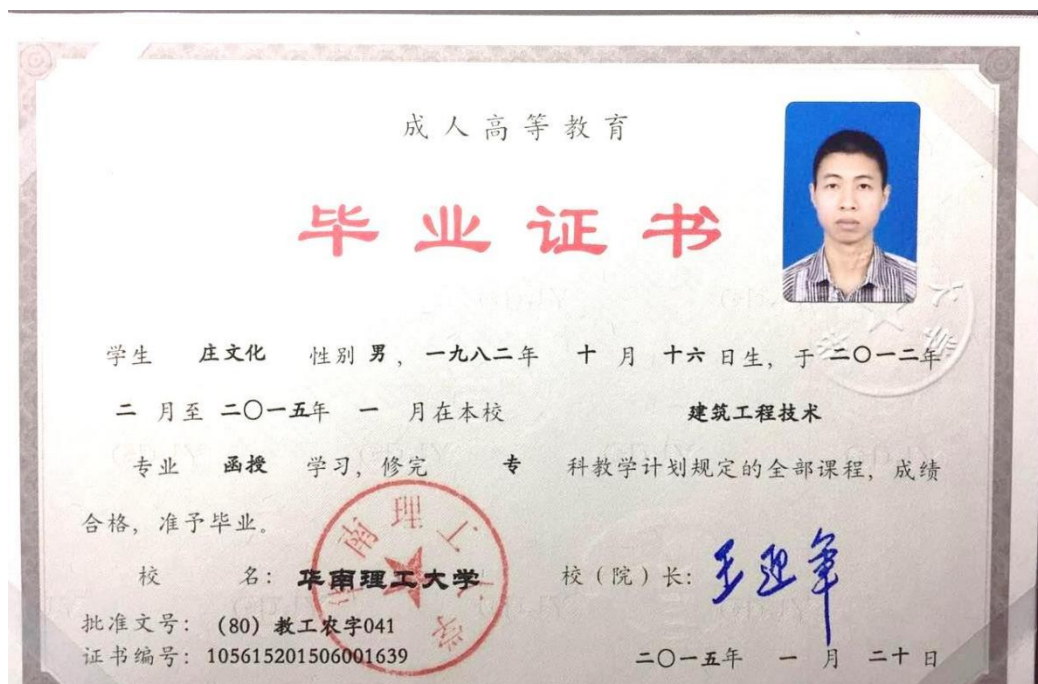 成人高等教育
毕业证书
学生 庄文化 性别 男，一九八二年 十 月 十六 日生，于 二〇一二年
二 月至 二〇一五年 一 月在本校 建筑工程技术
专业 函授 学习，修完 专 科教学计划规定的全部课程，成绩
合格，准予毕业。
校 名： 华南理工大学 校（院）长： 王迎军
批准文号： (80) 教工农字041
证书编号： 105615201506001639 二〇一五年 一 月 二十 日